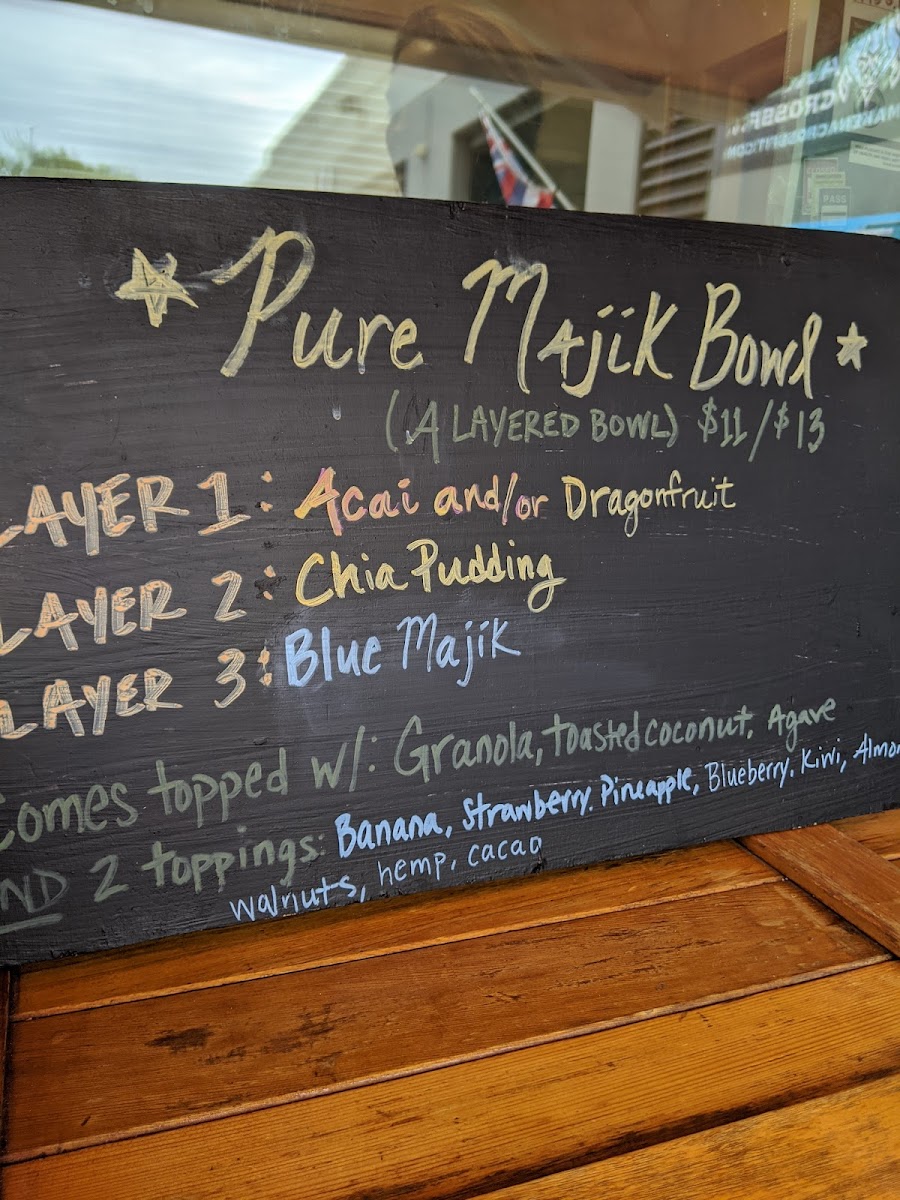 Pure Majik Bowl
(A LAYERED BOWL) $11/$13
LAYER 1: Acai and/or Dragonfruit
LAYER 2: Chia Pudding
LAYER 3: Blue Majik
Comes topped w/: Granola, toasted coconut, Agave
AND 2 toppings: Banana, Strawberry, Pineapple, Blueberry, Kiwi, Almon
walnuts, hemp, cacao
PASS